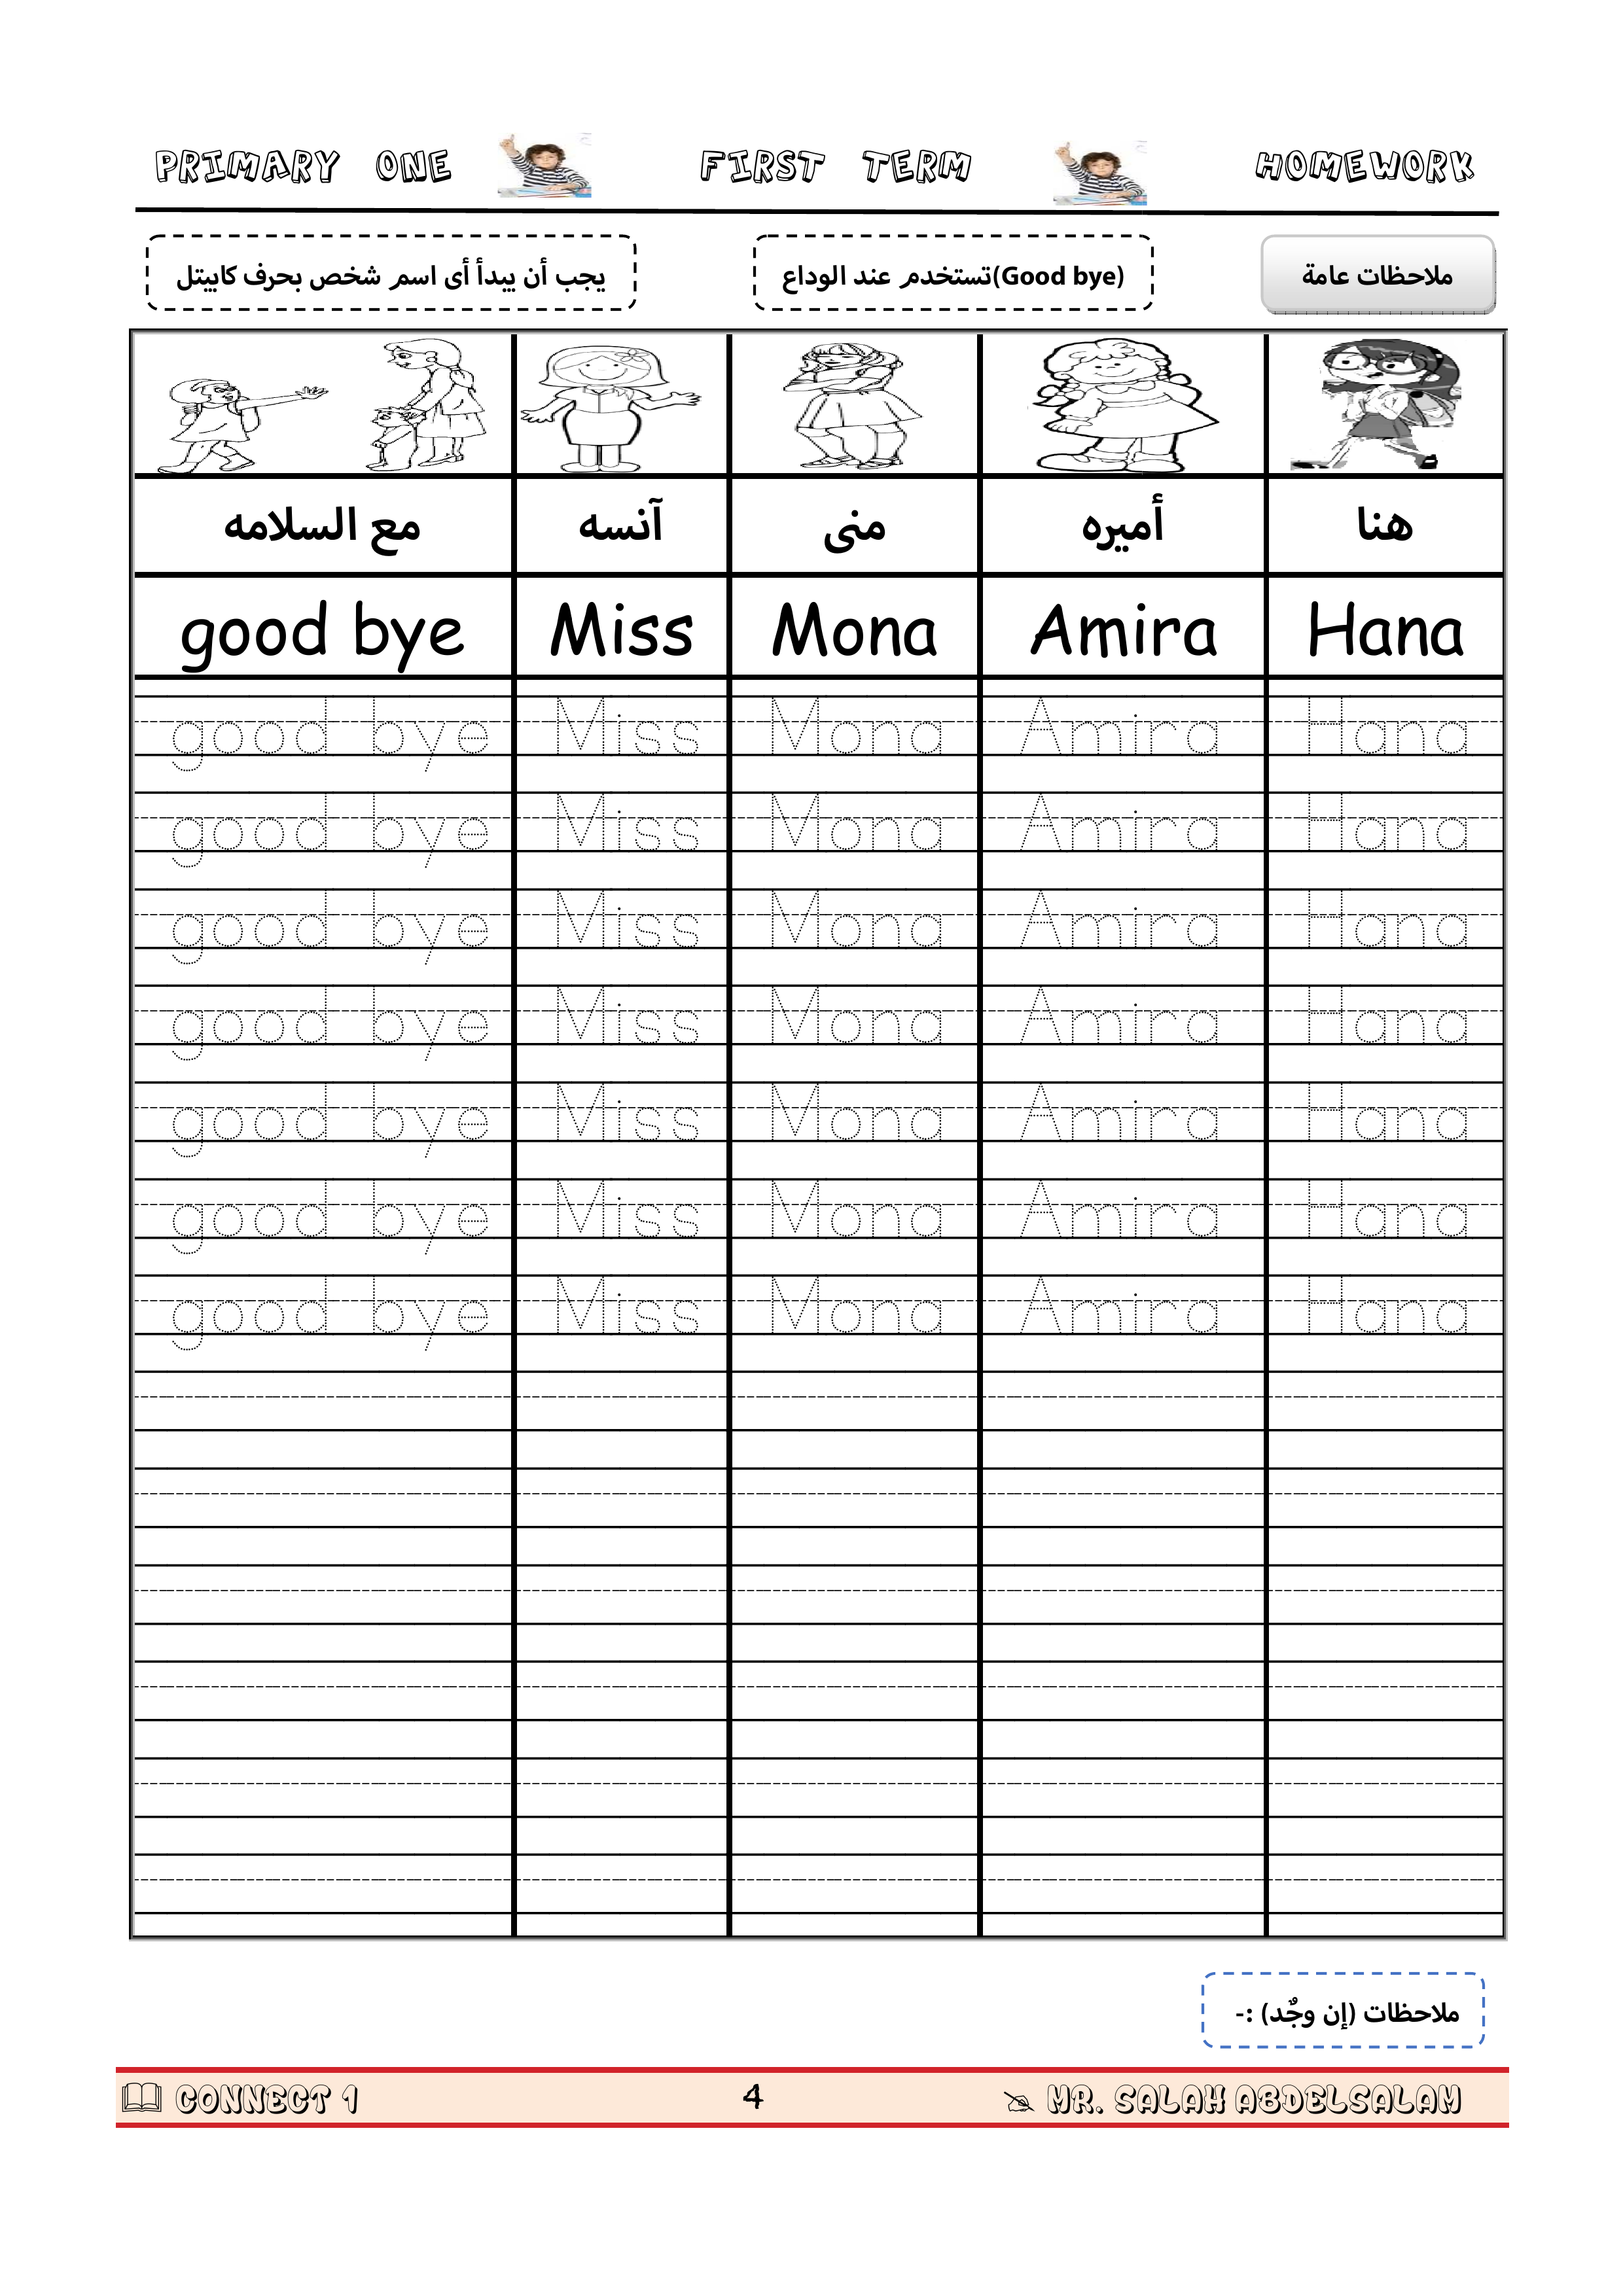 PRIMARY ONE FIRST TERM HOMEWORK
ملاحظات عامة
(Good bye)تستخدم عند الوداع
يجب أن يبدأ أى اسم شخص بحرف كابيتل
مع السلامه آنسه منى أميره هنا
good bye Miss Mona Amira Hana
good bye Miss Mona Amira Hana
good bye Miss Mona Amira Hana
good bye Miss Mona Amira Hana
good bye Miss Mona Amira Hana
good bye Miss Mona Amira Hana
good bye Miss Mona Amira Hana
good bye Miss Mona Amira Hana
ملاحظات (إن وجٌد) :-
CONNECT 1 4 MR. SALAH ABDELSALAM